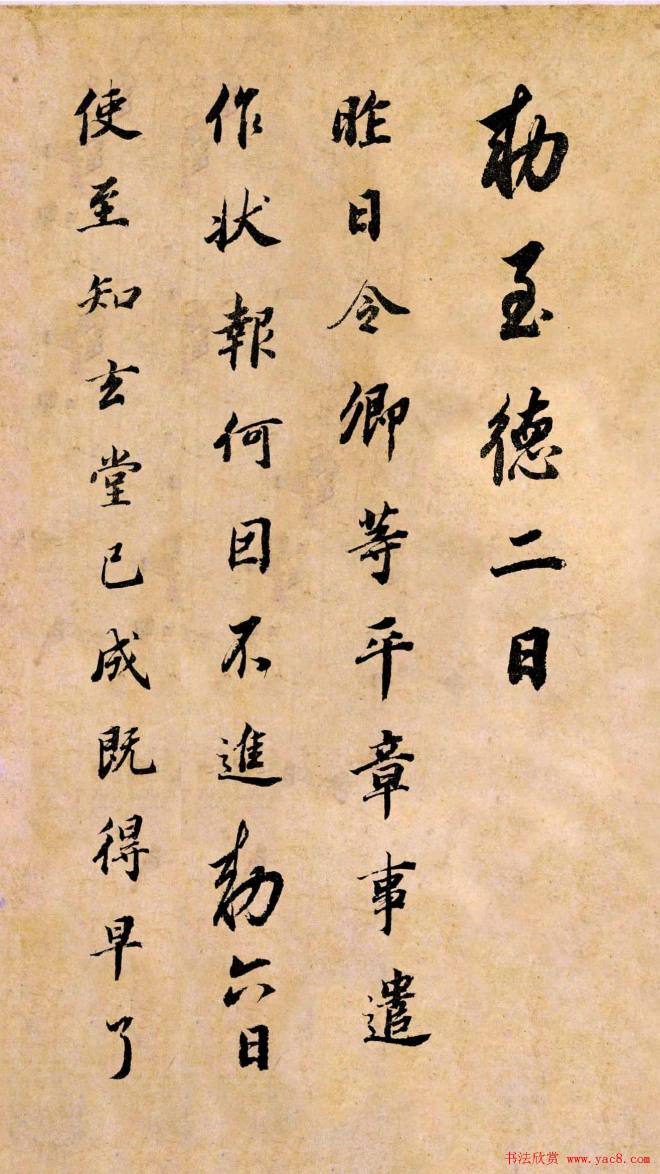 敕至德二日
昨日令卿等平章事遣
作状報何因不進敕六日
使至知玄堂已成既得早了
书法欣赏 www.yac8.com